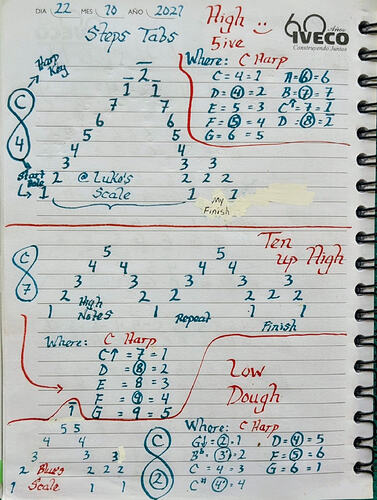 DIA 22 MES 10 AÑO 2021
60 Años
IVECO
Construyendo Juntos
Steps Tabs
High
5ive
Harp
Key
C
4
Start
Hole
2
1 1
7 7
6 6
5 5
4 4
3 3 3
2 @ Luko's 2 2 2
1 Scale 1 1
My
Finish
Where: C Harp
C = 4 = 1 A = 6 = 6
D = 4 = 2 B = 7 = 7
E = 5 = 3 C↑ = 7 = 1
F = 5 = 4 D = 8 = 2
G = 6 = 5
Ten
up High
C
7
5 5
4 4 4 4
3 3 3 3 3
2 High 2 2 2 2 2
1 Notes 1 Repeat 1 1
Finish
Where: C Harp
C↑ = 7 = 1
D = 8 = 2
E = 8 = 3
F = 9 = 4
G = 9 = 5
Low
Dough
1
5 5
4 4
3 3 3
2 Blues 2 2 2
1 Scale 1 1
C
2
Where: C Harp
G↓ = 2 = 1 D = 4 = 5
Bb = 3' = 2 F = 5 = 6
C = 4 = 3 G = 6 = 1
C# 4' = 4